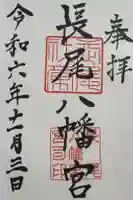 奉拝
長尾八幡宮
令和六年十一月三日